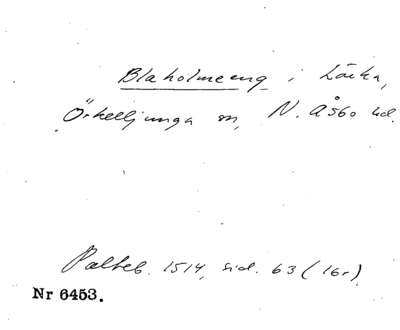 Blaholmeeng i Lärka,
Örkelljunga sn, N. Åsbo hd.
Palteb. 1514, sid. 63 (16r)
Nr 6453.